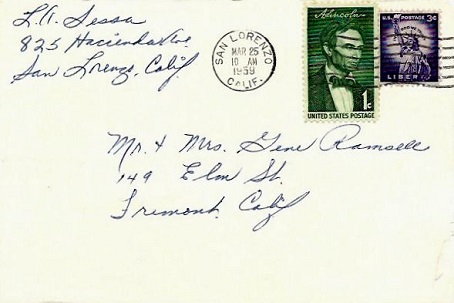 L.A. Sessa
825 Hacienda Ave.
San Lorenzo, Calif
SAN LORENZO
MAR 25
10 AM
1959
CALIF.
A. Lincoln
1¢
UNITED STATES POSTAGE
U.S. POSTAGE 3¢
LIBERTY
Mr. & Mrs. Gene Ramsell
149 Elm St.
Fremont, Calif